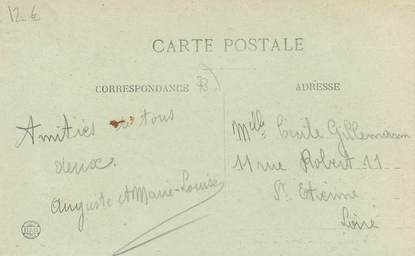 12-€
CARTE POSTALE
CORRESPONDANCE
ADRESSE
Amitiés à tous
deux.
Auguste et Marie-Louise
Melle Cécile Gillemaron
11 rue Robert 11
St Etienne
Loire